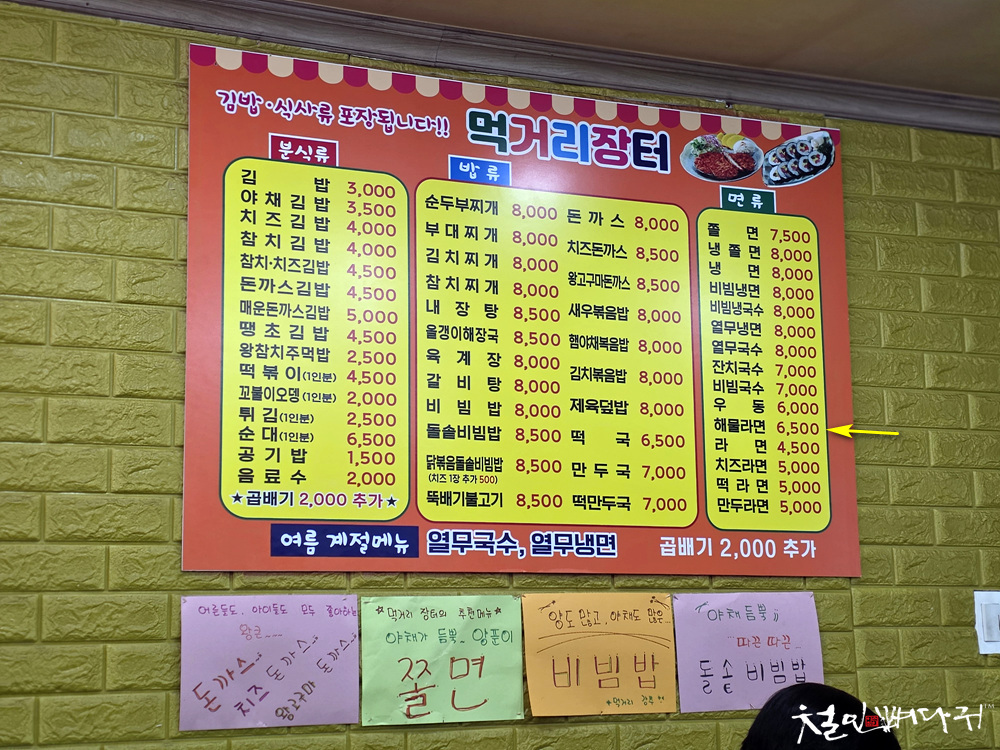 김밥·식사류 포장됩니다!!
먹거리장터
분식류
김 밥 3,000
야채김밥 3,500
치즈김밥 4,000
참치김밥 4,000
참치·치즈김밥 4,500
돈까스김밥 4,500
매운돈까스김밥 5,000
땡초김밥 4,500
왕참치주먹밥 2,500
떡볶이(1인분) 4,500
꼬불이오뎅(1인분) 2,000
튀김(1인분) 2,500
순대(1인분) 6,500
공기밥 1,500
음료수 2,000
★곱배기 2,000 추가★
밥류
순두부찌개 8,000
부대찌개 8,000
김치찌개 8,000
참치찌개 8,000
내장탕 8,500
올갱이해장국 8,500
육계장 8,000
갈비탕 8,000
비빔밥 8,000
돌솥비빔밥 8,500
닭볶음돌솥비빔밥 8,500
(치즈 1장 추가 500)
뚝배기불고기 8,500
돈까스 8,000
치즈돈까스 8,500
왕고구마돈까스 8,500
새우볶음밥 8,000
햄야채복음밥 8,000
김치볶음밥 8,000
제육덮밥 8,000
떡국 6,500
만두국 7,000
떡만두국 7,000
면류
쫄 면 7,500
냉쫄면 8,000
냉 면 8,000
비빔냉면 8,000
비빔냉국수 8,000
열무냉면 8,000
열무국수 8,000
잔치국수 7,000
비빔국수 7,000
우 동 6,000
해물라면 6,500
라 면 4,500
치즈라면 5,000
떡라면 5,000
만두라면 5,000
여름 계절메뉴 열무국수, 열무냉면
곱배기 2,000 추가
어른들도, 아이들도 모두 좋아하는
왕큰...
돈까스..
치즈돈까스..
왕고구마 돈까스..
*먹거리 장터의 추천메뉴*
야채가 듬뿍.. 양푼이
쫄면
양도 많고, 야채도 많은..
비빔밥
*먹거리 장터
야채 듬뿍
따끈 따끈..
돌솥비빔밥
철인뼈다귀™